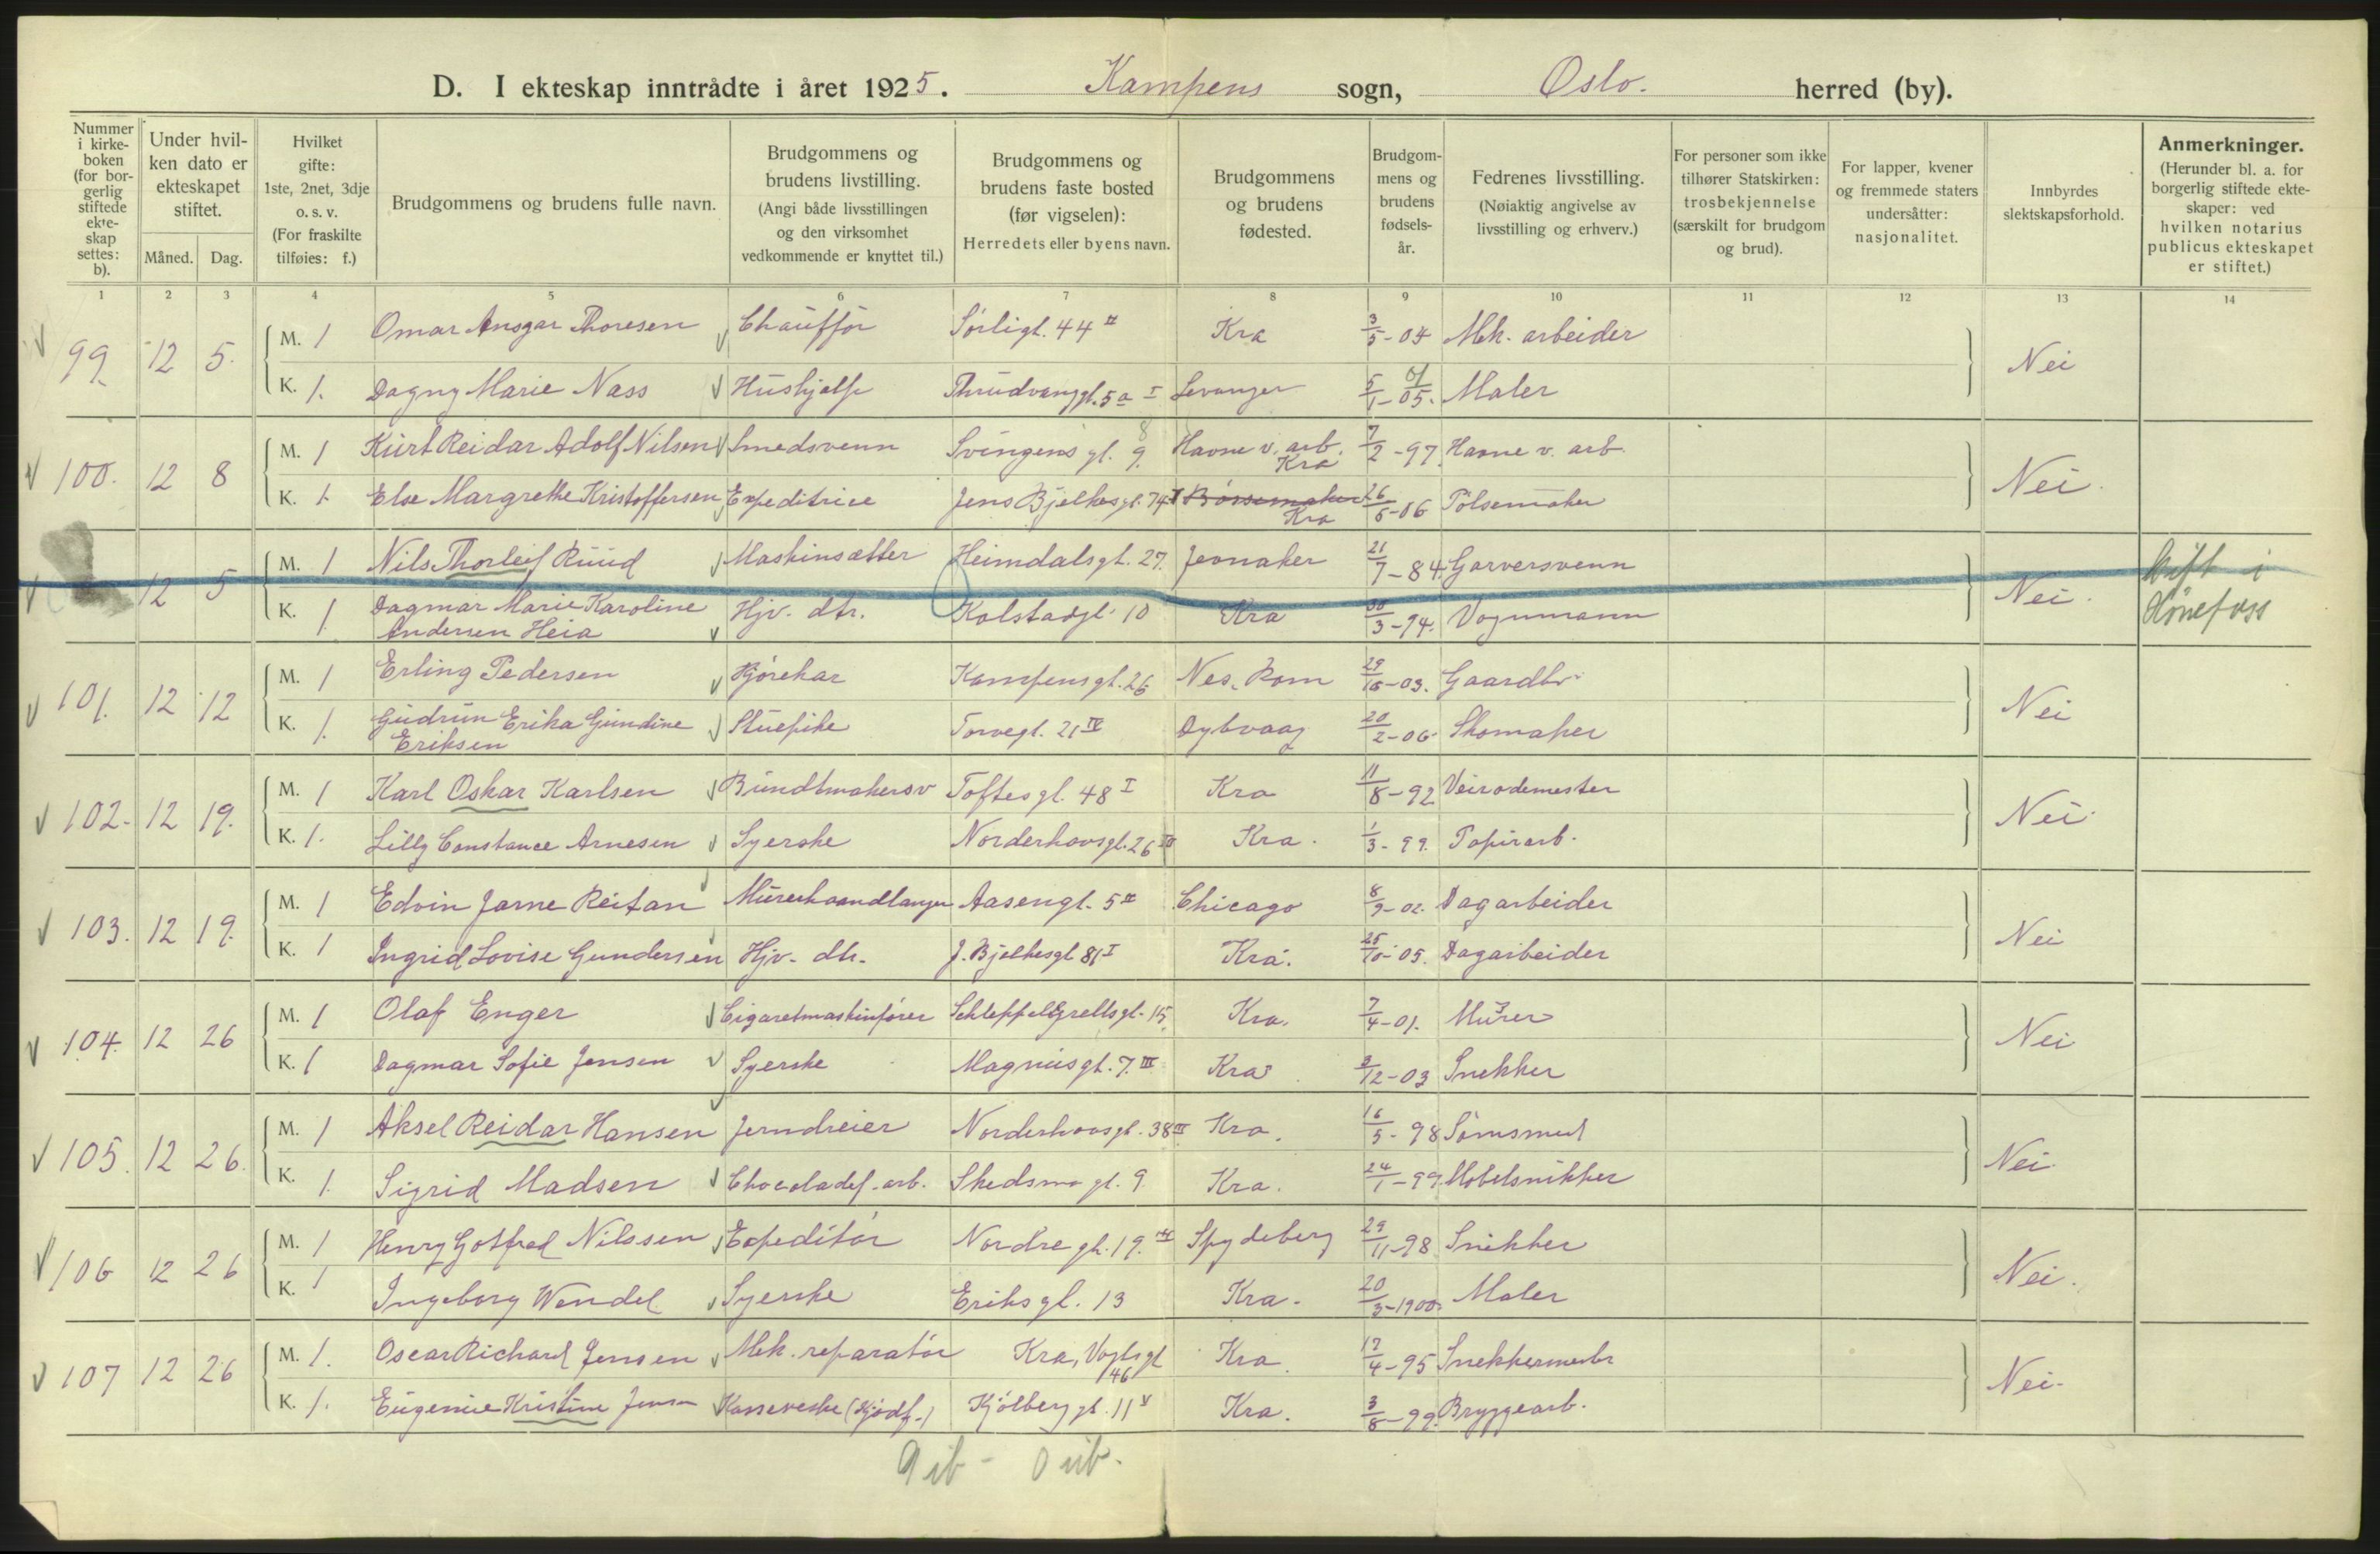 D. I ekteskap inntrådte i året 1925. Kampens sogn, Oslo. herred (by).
Nummer i kirkeboken (for borgerlig stiftede ekteskap settes: b).
Under hvilken dato er ekteskapet stiftet.
Måned. Dag.
Hvilket gifte: 1ste, 2net, 3dje o. s. v. (For fraskilte tilføies: f.)
Brudgommens og brudens fulle navn.
Brudgommens og brudens livstilling. (Angi både livsstillingen og den virksomhet vedkommende er knyttet til.)
Brudgommens og brudens faste bosted (før vigselen): Herredets eller byens navn.
Brudgommens og brudens fødested.
Brudgommens og brudens fødsels-år.
Fedrenes livsstilling. (Nøiaktig angivelse av livsstilling og erhverv.)
For personer som ikke tilhører Statskirken: trosbekjennelse (særskilt for brudgom og brud).
For lapper, kvener og fremmede staters undersåtter: nasjonalitet.
Innbyrdes slektskapsforhold.
Anmerkninger. (Herunder bl. a. for borgerlig stiftede ekteskaper: ved hvilken notarius publicus ekteskapet er stiftet.)
1 2 3 4 5 6 7 8 9 10 11 12 13 14
99 12 5. M. 1 Omar Ansgar Thoresen Chauffør Sørligt. 44 II Kra 3/5-04 Mek. arbeider Nei
K. 1. Dagny Marie Nass Hushjelp Thrudvanggt. 5a I Levanger 5/1-05. 01 Maler
100. 12 8 M. 1 Kurt Reidar Adolf Nilsen Smedsvenn Svingens gt. 9. 8 Havne v. arb. Kra 7/2-97. Havne v. arb. Nei.
K. 1. Else Margrethe Kristoffersen Expeditrice Jens Bjelkesgt. 74 I Børsemaker Kra 26/6-06 Pølsemaker
12 5 M. 1 Nils Thorleif Ruud Maskinsætter Heimdalsgt. 27. Jevnaker 21/7-84. Garversvenn Nei. Gift i Hønefoss
K. 1 Dagmar Marie Karoline Andersen Heia Hjv. dtr. Kolstadgt. 10 Kra 30/3-94. Vognmann
101. 12 12 M. 1 Erling Pedersen Kjørekar Kampensgt. 26 Nes. Rom 29/10-03. Gaardbr. Nei
K. 1. Gudrun Erika Gundine Eriksen Stuepike Torvegt. 21 IV Dybvaag 20/2-06 Skomaker
102. 12 19. M. 1 Karl Oskar Karlsen Bundtmakersv Toftesgt. 48 I Kra 11/8-92 Veirodemester Nei.
K. 1. Lilly Constance Arnesen Syerske Norderhovsgt. 26 III Kra. 1/3-99. Papirarb.
103. 12 19. M. 1 Edvin Jarne Reitan Murerhaandlanger Aasengt. 5 II Chicago 8/9-02. Dagarbeider Nei
K. 1 Ingrid Lovise Gundersen Hjv. dtr. J. Bjelkesgt 81 I Kra. 25/10-05. Dagarbeider
104. 12 26 M. 1 Olaf Enger Cigaretmaskinfører Schleppegrellsgt. 15. Kra. 7/4-01. Murer Nei
K. 1 Dagmar Sofie Jensen Syerske Magnusgt. 7. III Kra 3/12-03 Snekker
105. 12 26. M. 1 Aksel Reidar Hansen Jerndreier Norderhovsgt. 38 III Kra. 16/5-98 Sømsmed Nei.
K. 1. Sigrid Madsen Chocoladef. arb. Skedsmo gt. 9 Kra. 24/1-99. Møbelsnikker
106 12 26 M. 1 Henry Gotfred Nilssen Expeditør Nordre gt. 19. Spydeberg 29/11-98 Snikker Nei.
K. 1 Ingeborg Wendel Syerske Eriksgt. 13 Kra. 20/3-1900. Maler
107 12 26 M. 1. Oscar Richard Jensen Mek. reparatør Kra, Vogtsgt 46 Kra. 17/4-95 Snekkermestr Nei.
K. 1. Eugenie Kristine Jensen Kassererske (Kjødf.) Kjølberggt. 11 V Kra. 3/8-99. Bryggearb.
9 ib - 0 uib.